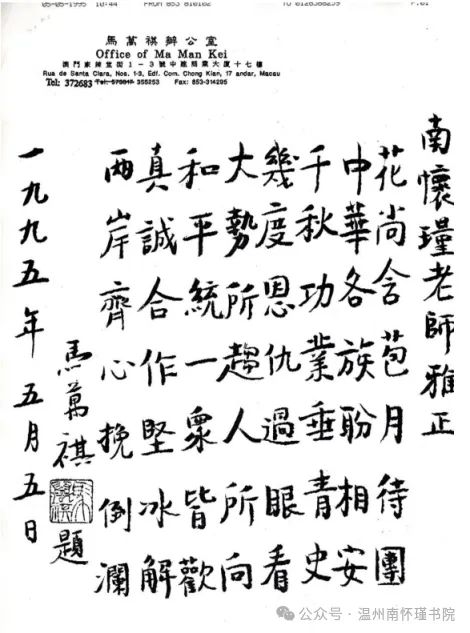 05-05-1995 10:44 FROM 853 810102 TO
馬萬祺辦公室
Office of Ma Man Kei
1-3號中建商業大廈十七樓
Rua de Santa Clara, Nos. 1-3, Edf. Com. Chong Kian, 17 andar, Macau
Tel: 372683 355253 Fax: 853-314205
南懷瑾老師雅正
花尚含苞月待團
中華各族盼相安
千秋功業垂青史
幾度恩仇過眼看
大勢所趨人所向
和平統一衆皆歡
真誠合作堅冰解
兩岸齊心挽倒瀾
馬萬祺題
一九九五年五月五日
公众号·温州南怀瑾书院